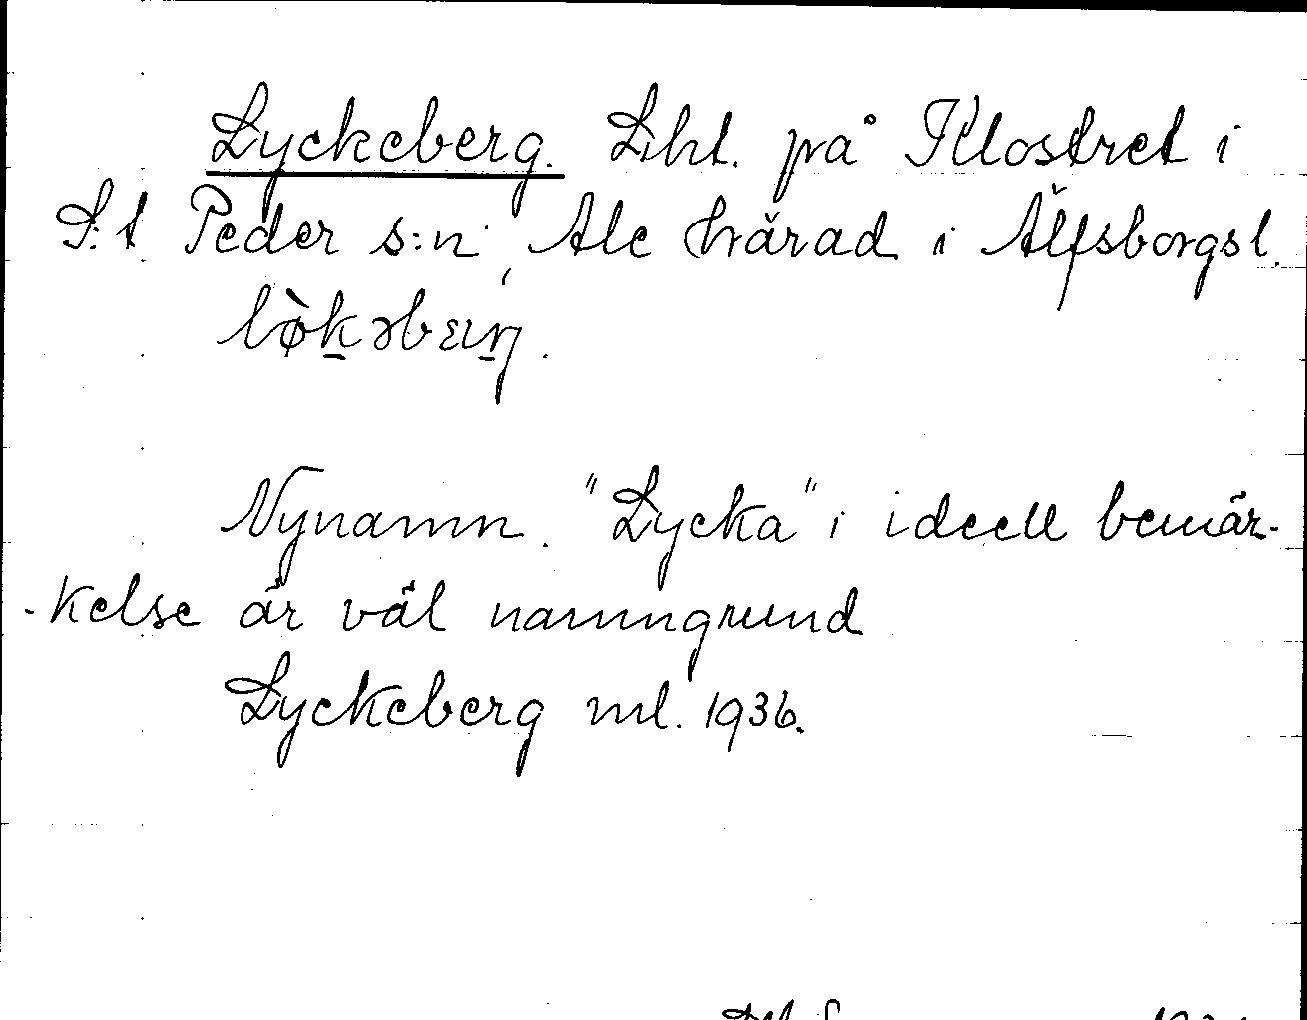 Lyckeberg. Lht. på Klostret i
S:t Peder s:n, Ale härad i Älfsborgsl.
Nynamn. "Lycka" i ideell bemär-
-kelse är väl namngrund
Lyckeberg ml. 1936.